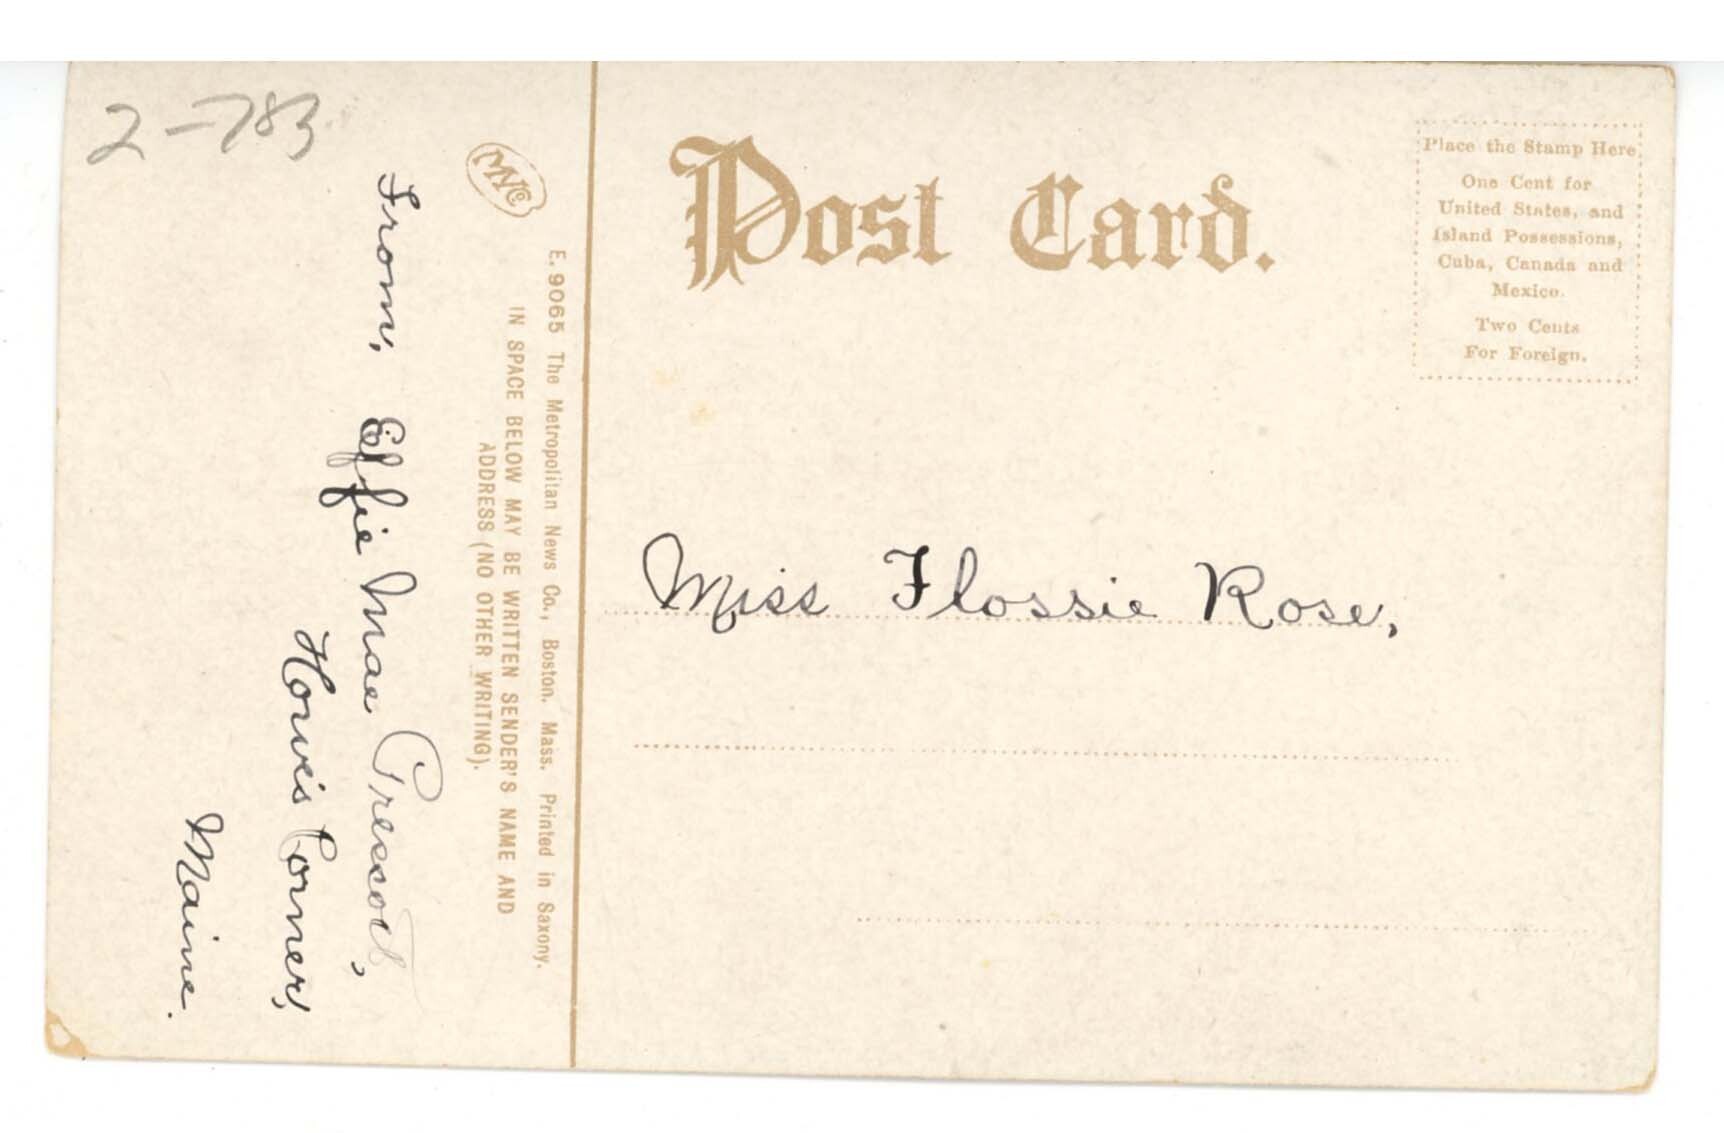 2-783
MNCo
Post Card.
Place the Stamp Here
One Cent for
United States, and
Island Possessions,
Cuba, Canada and
Mexico.
Two Cents
For Foreign.
E. 9065 The Metropolitan News Co., Boston. Mass. Printed in Saxony.
IN SPACE BELOW MAY BE WRITTEN SENDER'S NAME AND
ADDRESS (NO OTHER WRITING).
From, Effie Mae Prescott,
Howe's Corner,
Maine.
Miss Flossie Rose,